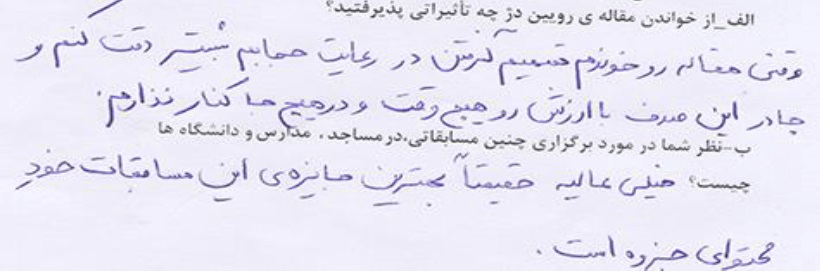 الف_از خواندن مقاله ی رویین دژ چه تأثیراتی پذیرفتید؟
وقتی مقاله رو خوندم تصمیم گرفتن در رعایت حجابم بیشتر دقت کنم و
چادر این صدف باارزش رو هیچ وقت و درهیچ جا کنار نذارم.
ب-نظر شما در مورد برگزاری چنین مسابقاتی،درمساجد، مدارس و دانشگاه ها
چیست؟ خیلی عالیه حقیقتاً بهترین جایزه‌ی این مسابقات خودِ
محتوای جزوه است.